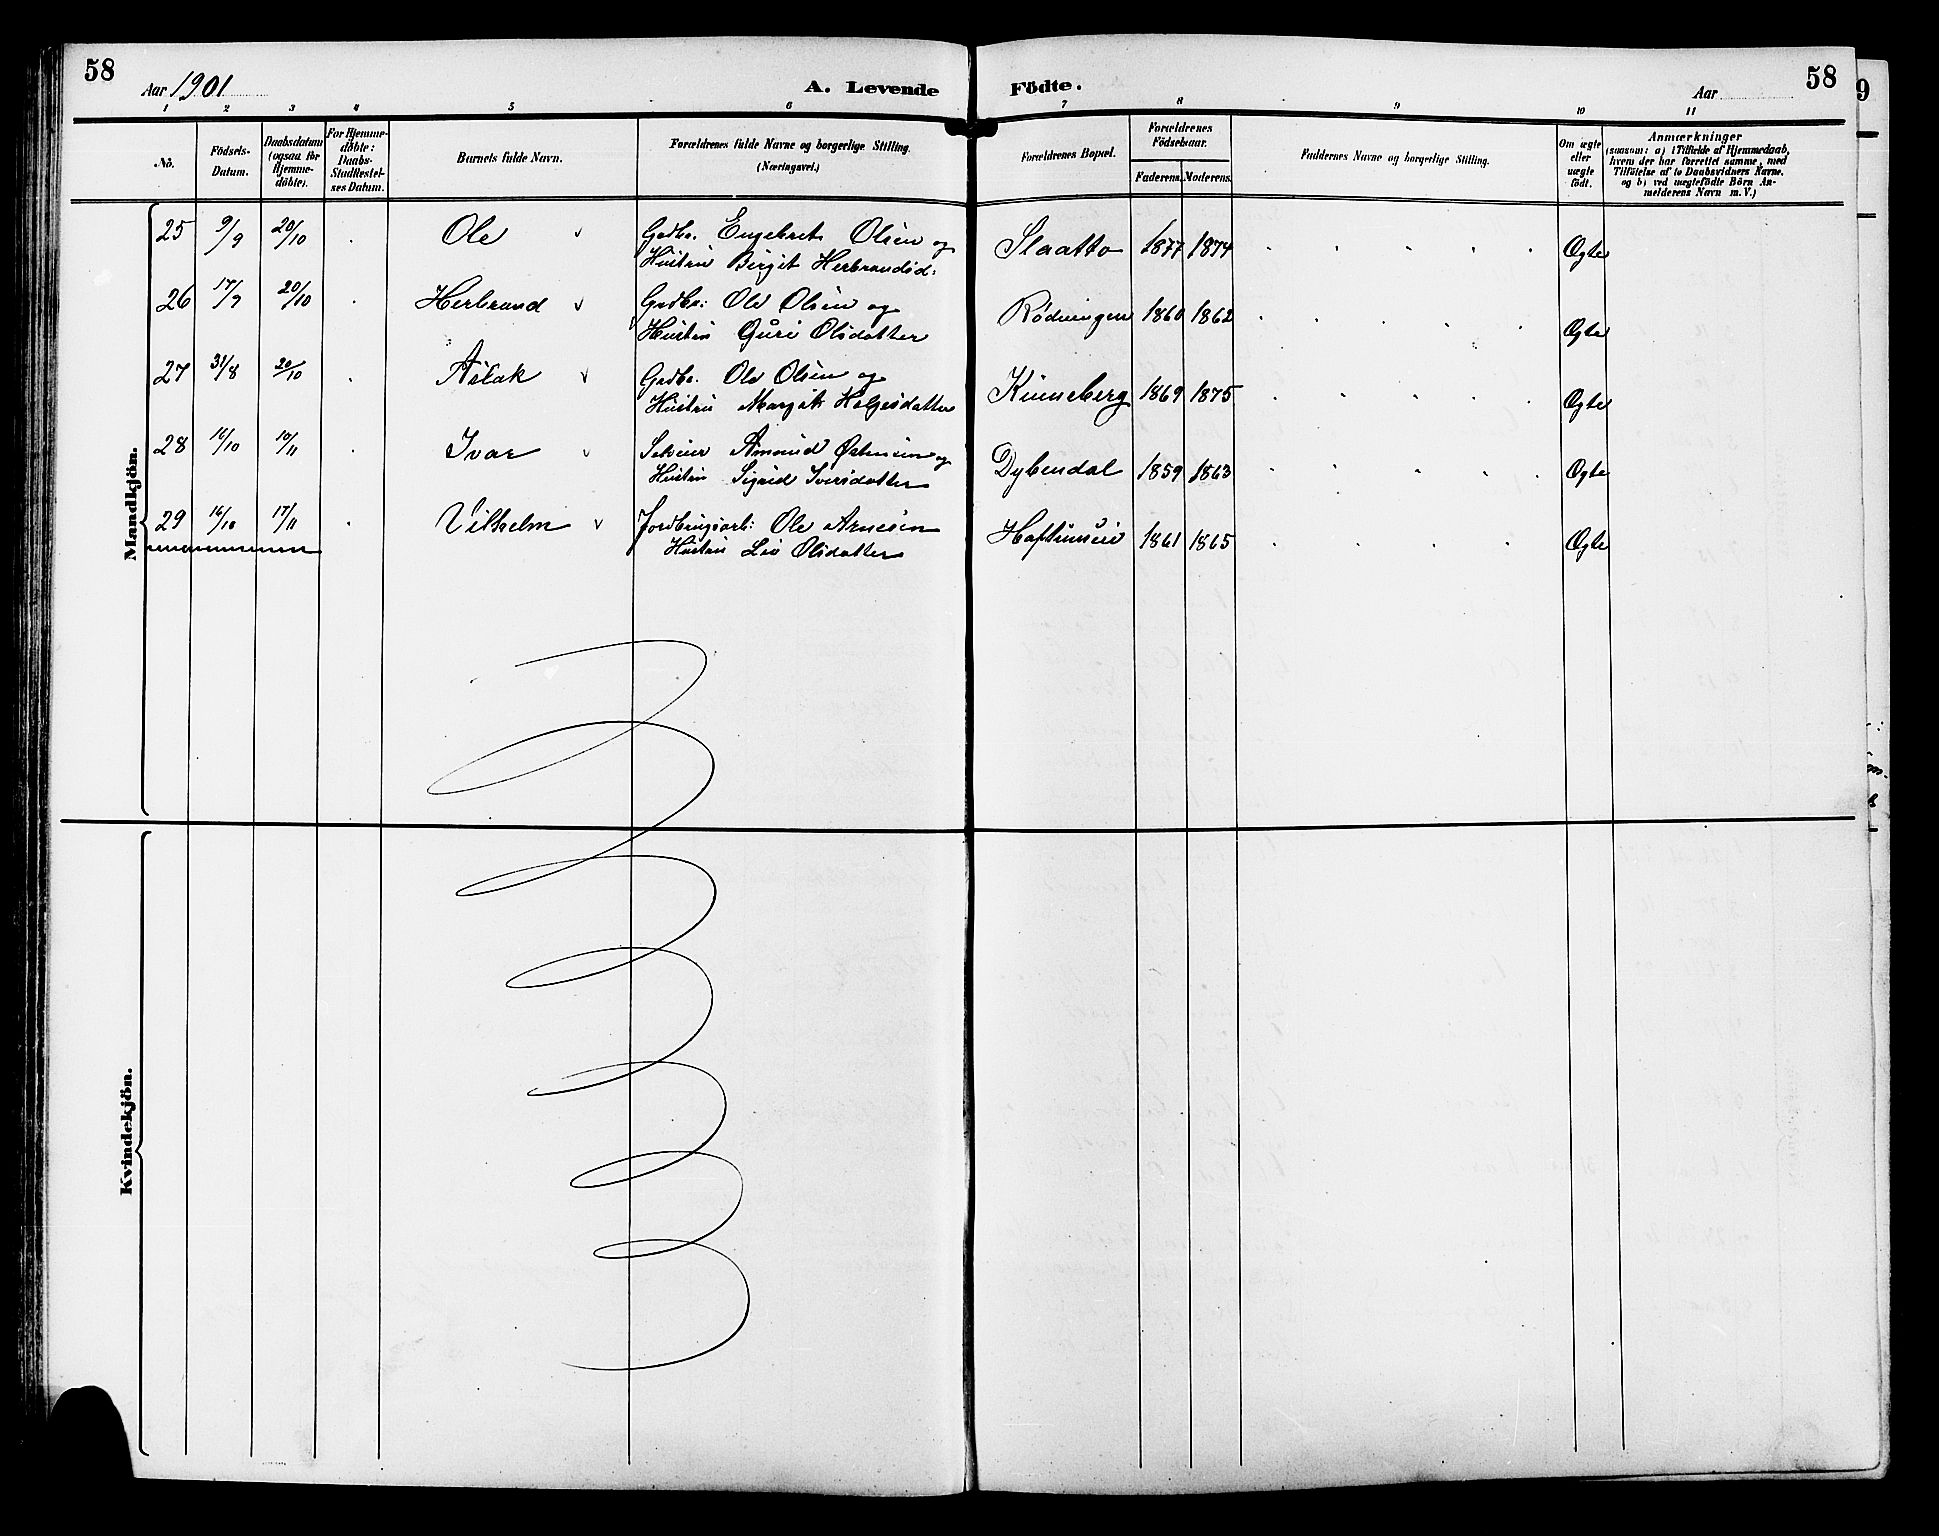 58
Aar 1901
A. Levende Födte.
Aar
58
1 2 3 4 5 6 7 8 9 10 11
No.
Födsels-Datum.
Daabsdatum (ogsaa for Hjemmedöbte).
For Hjemmedöbte: Daabs-Stadfæstelses Datum.
Barnets fulde Navn.
Forældrenes fulde Navne og borgerlige Stilling. (Næringsvei.)
Forældrenes Bopæl.
Forældrenes Födselsaar.
Faderens. Moderens.
Faddernes Navne og borgerlige Stilling.
Om ægte eller uægte født.
Anmærkninger
(saasom: a) i Tilfælde af Hjemmedaab,
hvem der har forrettet samme, med
Tilföielse af to Daabsvidners Navne,
og b) ved uægtefödte Börn An-
melderens Navn m. V.)
Mandkjön.
25 9/9 20/10 Ole Gadbr. Engebret Olsen og Slaatto 1877 1874 Ægte
Hustru Birgit Herbrandsd:
26 17/9 20/10 Herbrand Gadbr: Ole Olsen og Rødningen 1860 1862 Ægte
Hustru Guri Olsdatter
27 31/8 20/10 Aslak Gadbr. Ole Olsen og Kinneberg 1869 1875 Ægte
Hustru Margit Helgesdatter
28 16/10 10/11 Ivar Selveier Amund Østensen og Dybendal 1859 1863 Ægte
Hustru Sigrid Iversdatter
29 16/10 17/11 Vilhelm Jordbrugsarb: Ole Arnesen 1861 1865 Ægte
Hustru Liv Olsdatter
Kvindekjön.
9